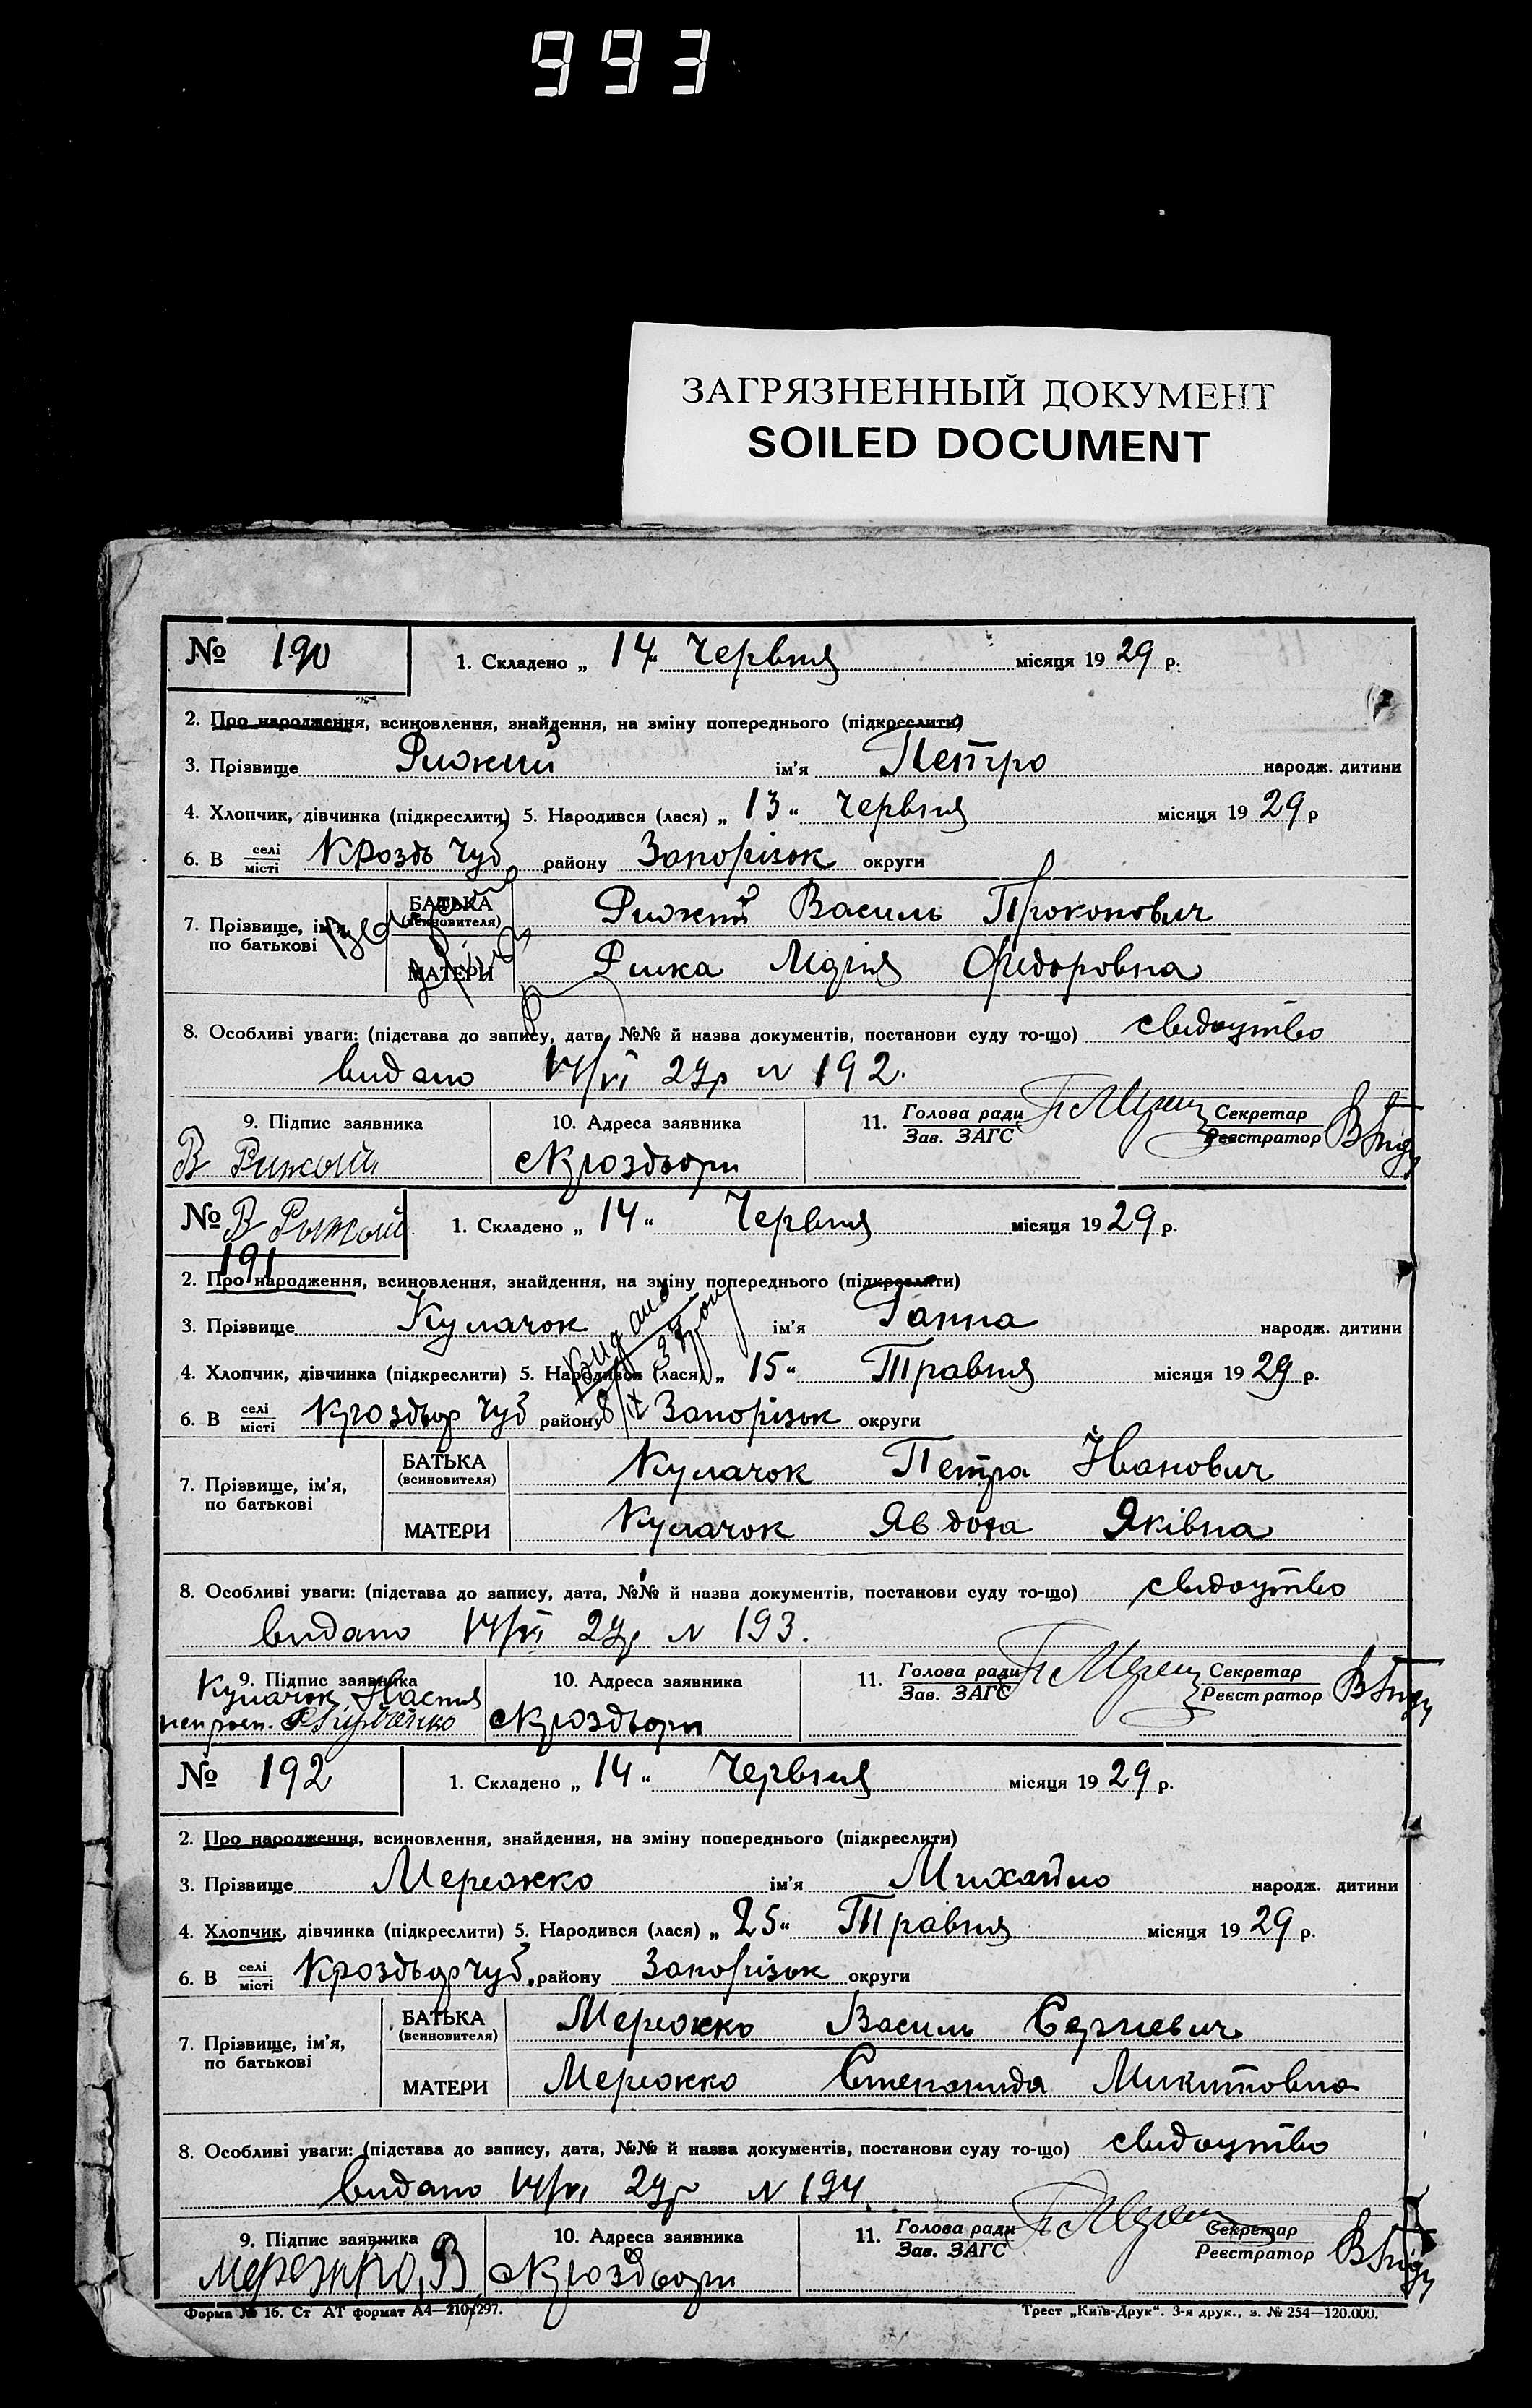 993
ЗАГРЯЗНЕННЫЙ ДОКУМЕНТ
SOILED DOCUMENT
№ 190 1. Складено „ 14 “ Червня місяця 1929 р.
2. Про народження, всиновлення, знайдення, на зміну попереднього (підкреслити)
3. Прізвище Рижкий ім'я Петро народж. дитини
4. Хлопчик, дівчинка (підкреслити) 5. Народився (лася) „ 13 “ Червня місяця 1929 р
6. В селі/місті Кроздь Чуб району Запорізок округи
7. Прізвище, ім'я, по батькові
БАТЬКА (всиновителя) Рижкий Василь Прокопович
МАТЕРИ Марія Федоровна
8. Особливі уваги: (підстава до запису, дата, №№ й назва документів, постанови суду то-що) свидоцтво
видано 14/VI 29р N 192.
9. Підпис заявника 10. Адреса заявника 11. Голова ради/Зав. ЗАГС Секретар/Реєстратор
В
№ 191 1. Складено „ 14 “ Червня місяця 1929 р.
2. Про народження, всиновлення, знайдення, на зміну попереднього (підкреслити)
3. Прізвище Кулачок ім'я Ганна народж. дитини
4. Хлопчик, дівчинка (підкреслити) 5. Народився (лася) „ 15 “ Травня місяця 1929 р.
6. В селі/місті Кроздвор Чуб району Запорізок округи
7. Прізвище, ім'я, по батькові
БАТЬКА (всиновителя) Кулачок Петра Иванович
МАТЕРИ Кулачок Явдоха Яківна
8. Особливі уваги: (підстава до запису, дата, №№ й назва документів, постанови суду то-що) свидоцтво
видано 14/VI 29р N 193.
9. Підпис заявника 10. Адреса заявника 11. Голова ради/Зав. ЗАГС Секретар/Реєстратор
Кулачок Настя
№ 192 1. Складено „ 14 “ Червня місяця 1929 р.
2. Про народження, всиновлення, знайдення, на зміну попереднього (підкреслити)
3. Прізвище Мережко ім'я Михайло народж. дитини
4. Хлопчик, дівчинка (підкреслити) 5. Народився (лася) „ 25 “ Травня місяця 1929 р.
6. В селі/місті Кроздвор Чуб. району Запорізок округи
7. Прізвище, ім'я, по батькові
БАТЬКА (всиновителя) Мережко Василь Сергиевич
МАТЕРИ Мережко Степанида Микитовна
8. Особливі уваги: (підстава до запису, дата, №№ й назва документів, постанови суду то-що) свидоцтво
видано 14/VI 29р N 194.
9. Підпис заявника 10. Адреса заявника 11. Голова ради/Зав. ЗАГС Секретар/Реєстратор
Мережко, В
Форма № 16. Ст АТ формат А4—210×297. Трест „Київ-Друк“. 3-я друк., з. № 254—120.000.